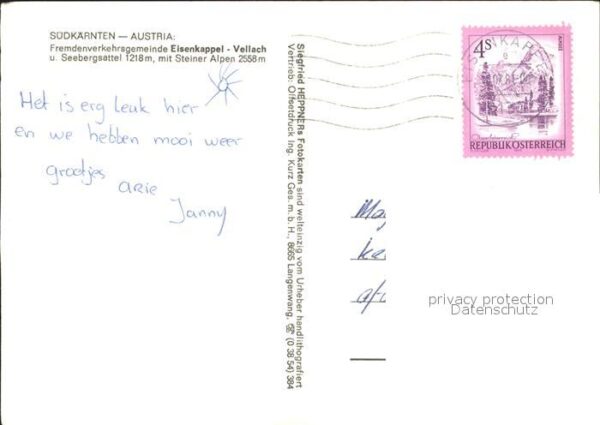 SÜDKÄRNTEN — AUSTRIA:
Fremdenverkehrsgemeinde Eisenkappel - Vellach
u. Seebergsattel 1218 m, mit Steiner Alpen 2558 m
Het is erg leuk hier
en we hebben mooi weer
groetjes ARie
Janny
Siegfried HEPPNERs Fotokarten sind welteinzig vom Urheber handlithografiert
Vertrieb: Offsetdruck Ing. Kurz Ges. m. b. H., 8665 Langenwang, ☏ (0 38 54) 384
4S
REPUBLIK ÖSTERREICH
privacy protection
Datenschutz